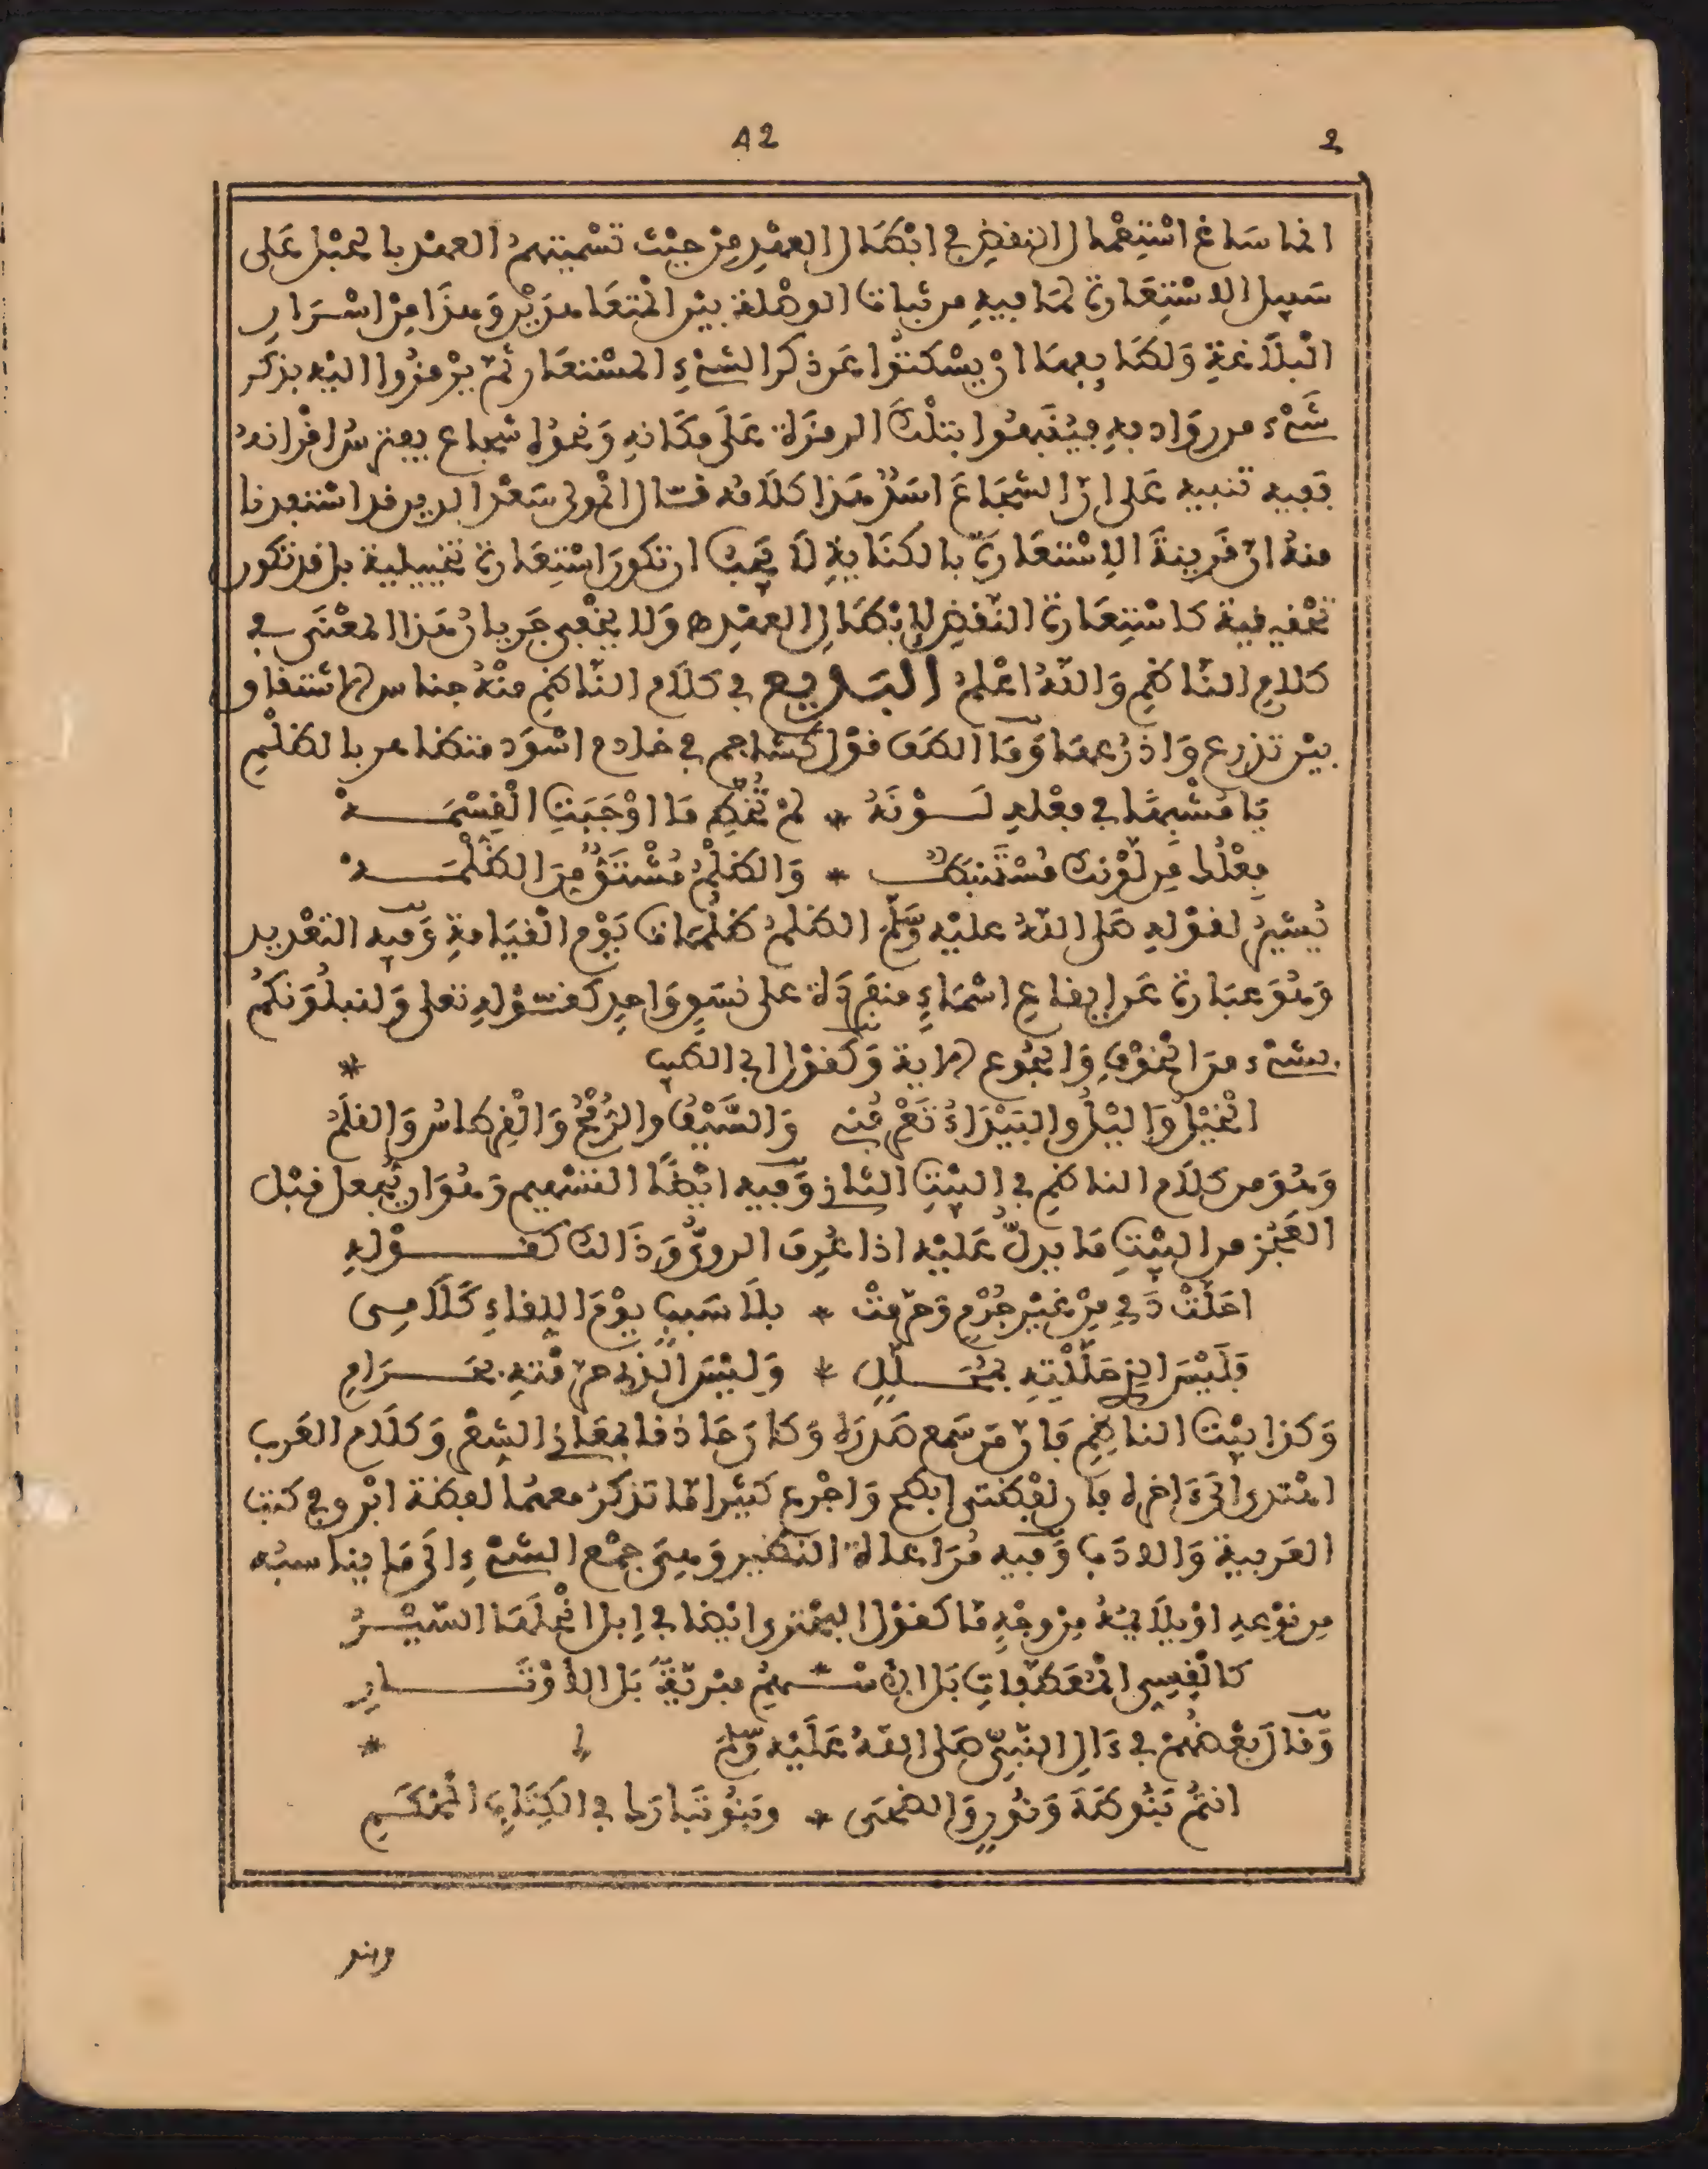 42
2
انما ساغ استعمال النفض في ابطال العهد من حيث تسميتهم العهد بالحبل على
سبيل الاستعارة لما فيه من ثبات الوصلة بين المتعاهدين وهذا من اسرار
البلاغة ولطايفها ان يسكتوا عن ذكر الشيء المستعار ثم يرمزوا اليه بذكر
شيء من روادفه فينبهوا بتلك الرمزة على مكانه ونحوه شجاع يفترس اقرانه
ففيه تنبيه على ان الشجاع اسد هذا كلامه قال المولى سعد الدين قد استفدنا
منه ان قرينة الاستعارة بالكناية لا يجب ان تكون استعارة تخييلية بل قد تكون
تحقيقية كاستعارة النقض لابطال العهد ه ولا يخفى جريان هذا المعنى في
كلام الناظم والله اعلم البديع في كلام الناظم منه جناس الاشتقاق
بين تذرع واذرعها وما الطف قول كشاجم في خادم اسود متظاهر بالظلم
يا مشبها في فعله لونه * لم تخط ما اوجبت القسمه
فعلك من لونك مستنبط * والظلم مشتق من الظلمه
يشير لقوله صلى الله عليه وسلم الظلم ظلمات يوم القيامة وفيه التعديد
وهو عبارة عن ايقاع اسماء منفردة على نسق واحد كقوله تعلى ولنبلونكم
بشيء من الخوف والجوع الاية وكقول ابي الطيب *
الخيل واليل والبيداء تعرفني والسيف والرمح والقرطاس والقلم
وهو من كلام الناظم في البيت الثاني وفيه ايضا التسهيم وهو ان يجعل قبل
العجز من البيت ما يدل عليه اذا عرف الروي وذالك كقوله
احلت دمي من غير جرم وحرمت * بلا سبب يوم اللقاء كلامي
فليس الذي حللته بمحلل * وليس الذي حرمته بحرام
وكذا بيت الناظم فان من سمع صدره وكان حاذقا بمعاني الشعر وكلام العرب
اهتدى الى ءاخره فان لفظتي ابطح واجرع كثيرا ما تذكر معهما لفظة ابرق في كتب
العربية والادب وفيه مراعاة النظير وهي جمع الشيء الى ما يناسبه
من نوعه او يلايمه من وجه ما كقول البحتري ايضا في ابل انحلها السير
كالقسي المعطفات بل الاسهم مبرية بل الاوتار
وقال بعضهم في ءال النبي صلى الله عليه وسلم *
انتم بنو طه ونون والضحى * وبنو تبارك في الكتاب المحكم
وبنو